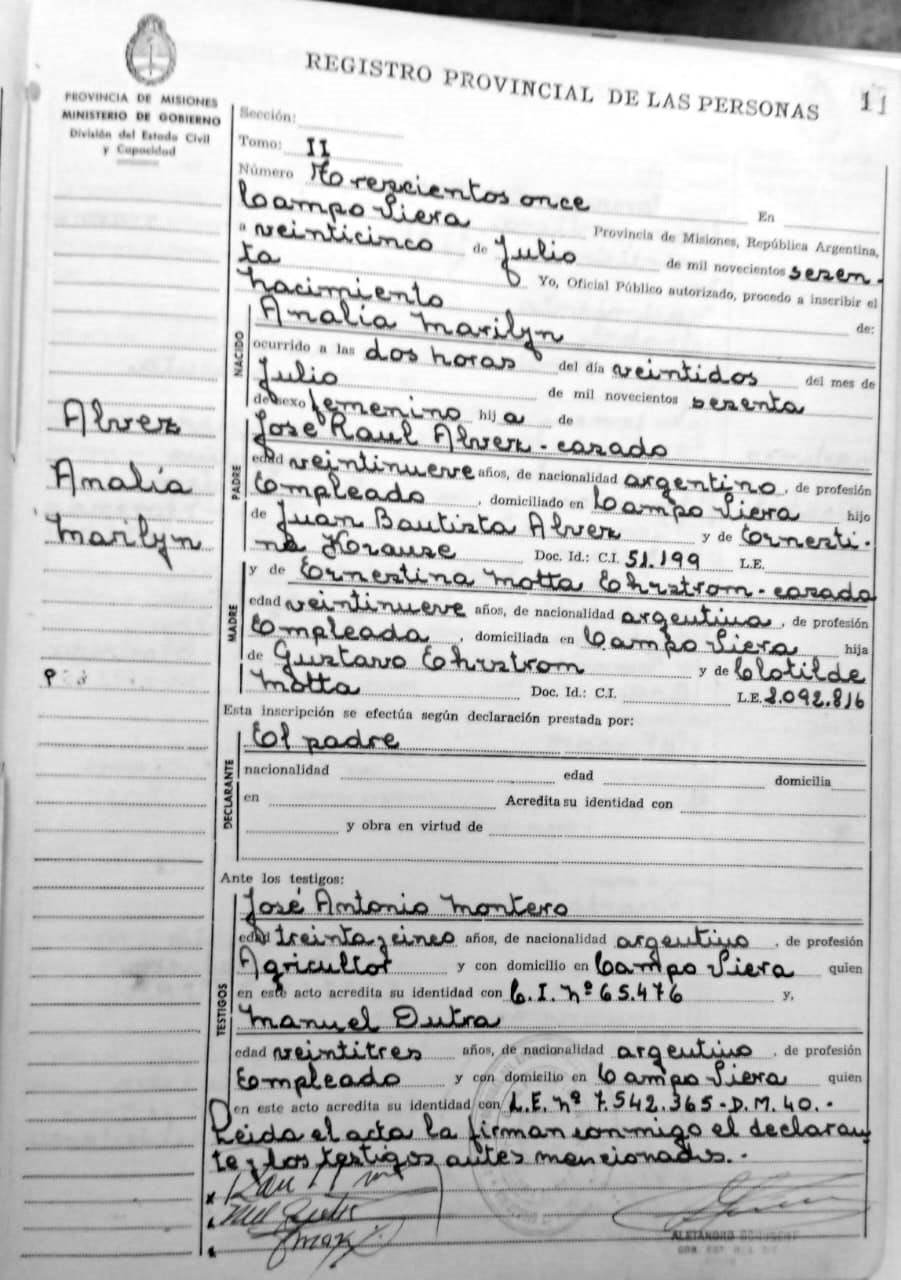 REGISTRO PROVINCIAL DE LAS PERSONAS
11
PROVINCIA DE MISIONES
MINISTERIO DE GOBIERNO
División del Estado Civil
y Capacidad
Sección:
Tomo: II
Número Trescientos once En
Campo Viera Provincia de Misiones, República Argentina,
a veinticinco de Julio de mil novecientos sesen-
ta Yo, Oficial Público autorizado, procedo a inscribir el
nacimiento de:
NACIDO
Analía Marilyn
ocurrido a las dos horas del día veintidos del mes de
Julio de mil novecientos sesenta
de sexo femenino hij a de
Alvez
Analía
Marilyn
PADRE
José Raul Alvez - casado
edad veintinueve años, de nacionalidad argentino, de profesión
Empleado, domiciliado en Campo Viera hijo
de Juan Bautista Alvez y de Ernesti-
na Krause Doc. Id.: C.I. 51.199 L.E.
MADRE
y de Ernestina Motta Ehrstrom - casada
edad veintinueve años, de nacionalidad argentina, de profesión
Empleada, domiciliada en Campo Viera hija
de Gustavo Ehrstrom y de Clotilde
Motta Doc. Id.: C.I. L.E. 2.092.816
Esta inscripción se efectúa según declaración prestada por:
DECLARANTE
El padre
nacionalidad edad domicilia
en Acredita su identidad con
y obra en virtud de
Ante los testigos:
TESTIGOS
José Antonio Montero
edad treinta y cinco años, de nacionalidad argentino, de profesión
Agricultor y con domicilio en Campo Viera quien
en este acto acredita su identidad con C.I. Nº 65.476 y,
Manuel Dutra
edad veintitres años, de nacionalidad argentino, de profesión
Empleado y con domicilio en Campo Viera quien
en este acto acredita su identidad con L.E. Nº 7.542.365 - D.M. 40.-
Leida el acta la firman conmigo el declaran-
te y los testigos antes mencionados.-
ALEJANDRO